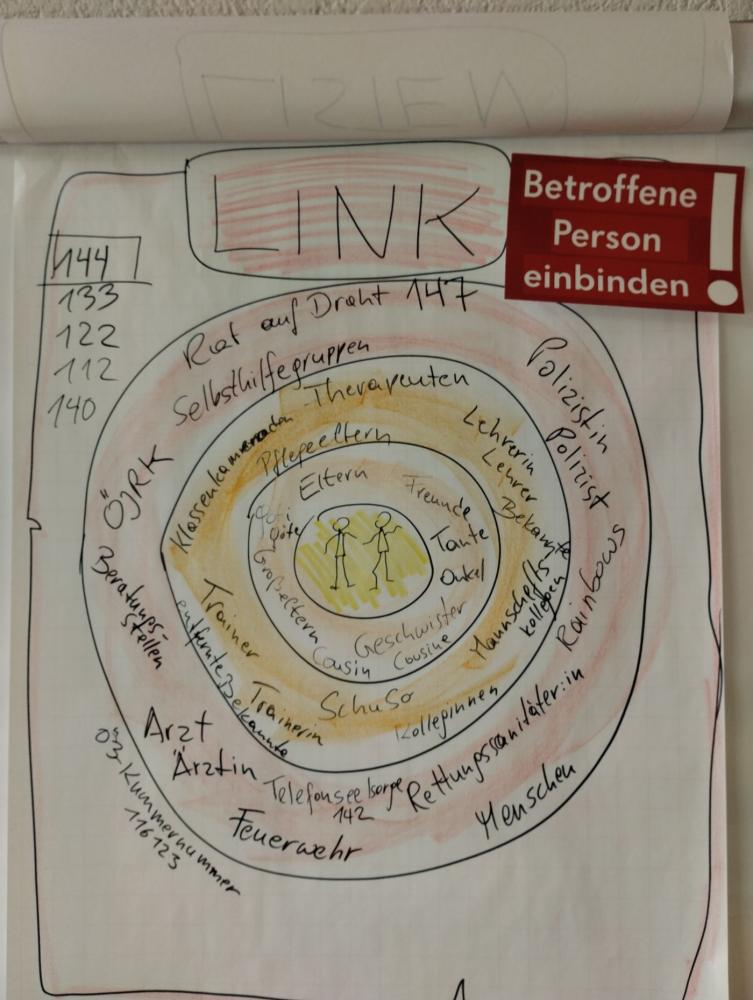 LINK
Betroffene
Person
einbinden !
144
133
122
112
140
Rat auf Draht 147
Selbsthilfegruppen
Therapeuten
Polizistin
Polizist
Lehrerin
Lehrer
Bekannte
Klassenkameraden
Pflegeeltern
Eltern
Freunde
Tante
Onkel
Göti
Gote
Großeltern
Geschwister
Cousin
Cousine
ÖJRK
Beratungs-
stellen
Trainer
entfernte Bekannte
Trainerin
SchuSo
Kolleginnen
Mannschafts-
kollegen
Rainbows
Arzt
Ärztin
Telefonseelsorge
142
Rettungssanitäter:in
Feuerwehr
Menschen
Ö3-Kummernummer
116123